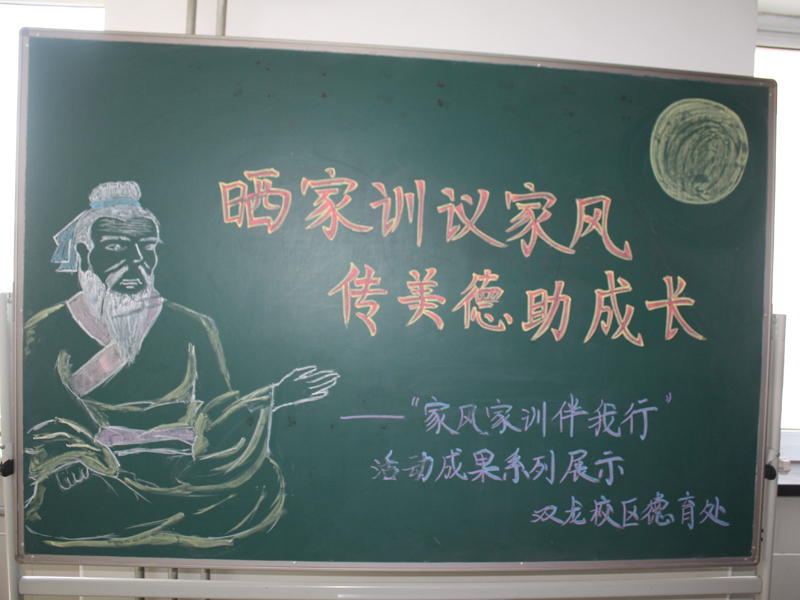 晒家训议家风
传美德助成长
——"家风家训伴我行"
活动成果系列展示
双龙校区德育处